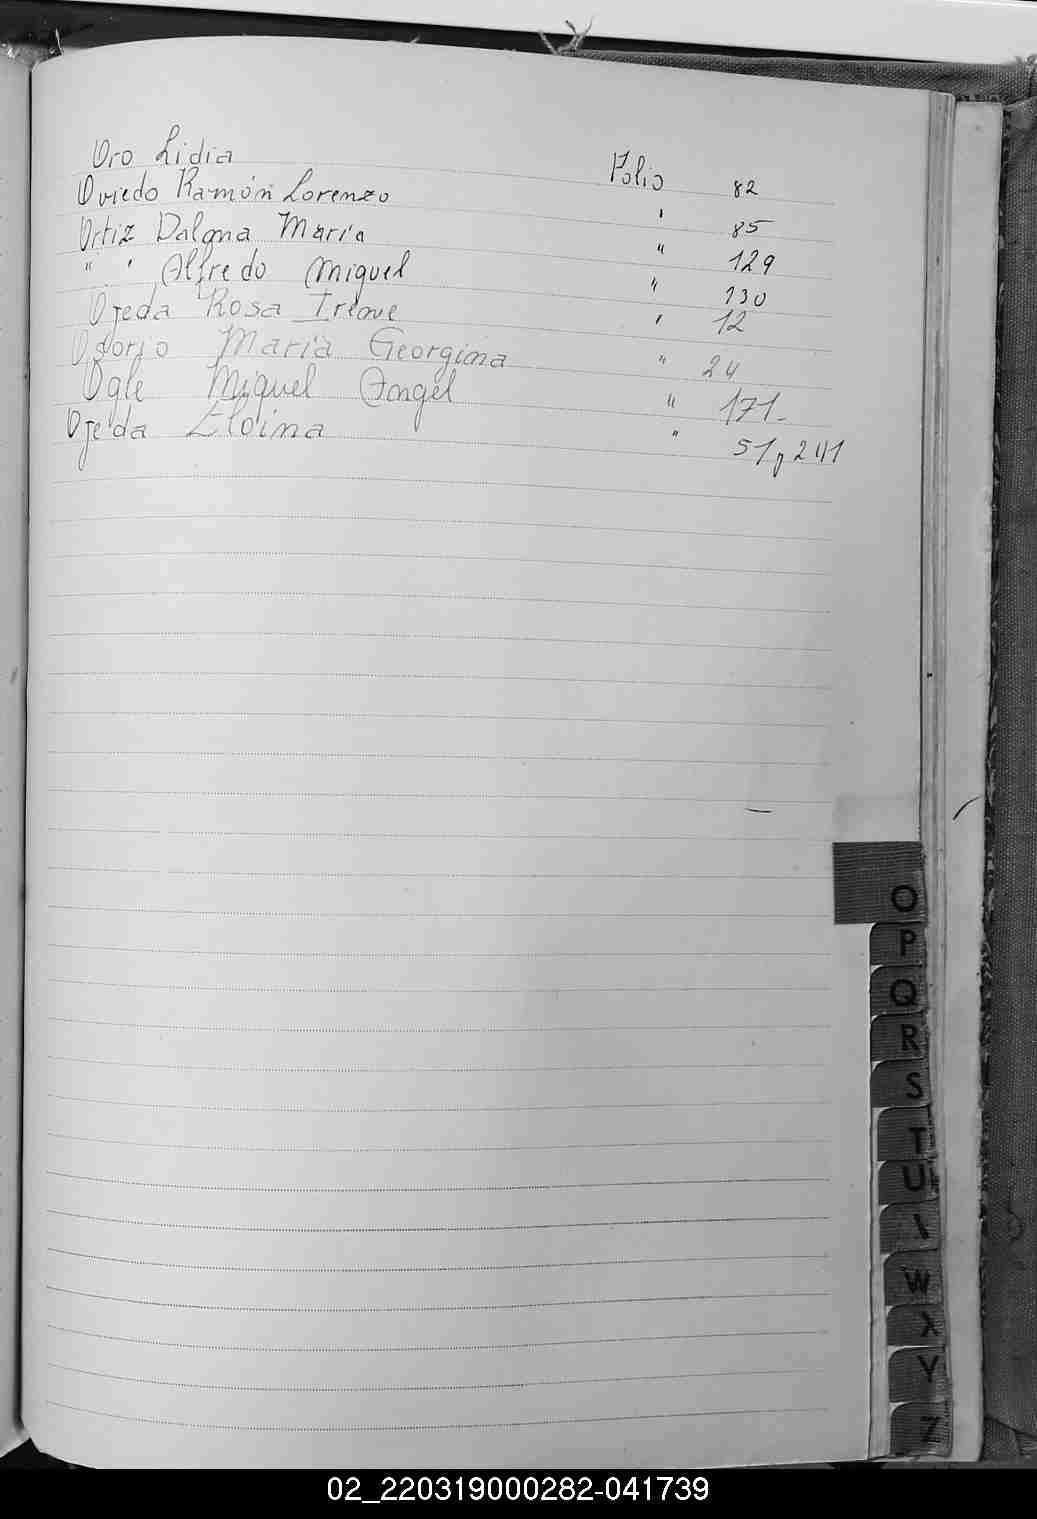 Oro Lidia Folio 82
Oviedo Ramón Lorenzo ' 85
Ortiz Dalgna María " 129
" ' Alfredo Miguel " 130
Ojeda Rosa Irene ' 12
Osorio María Georgina " 24
Ogle Miguel Angel " 171-
Ojeda Eloina " 51, 241
O
P
Q
R
S
T
U
W
X
Y
Z
02_220319000282-041739